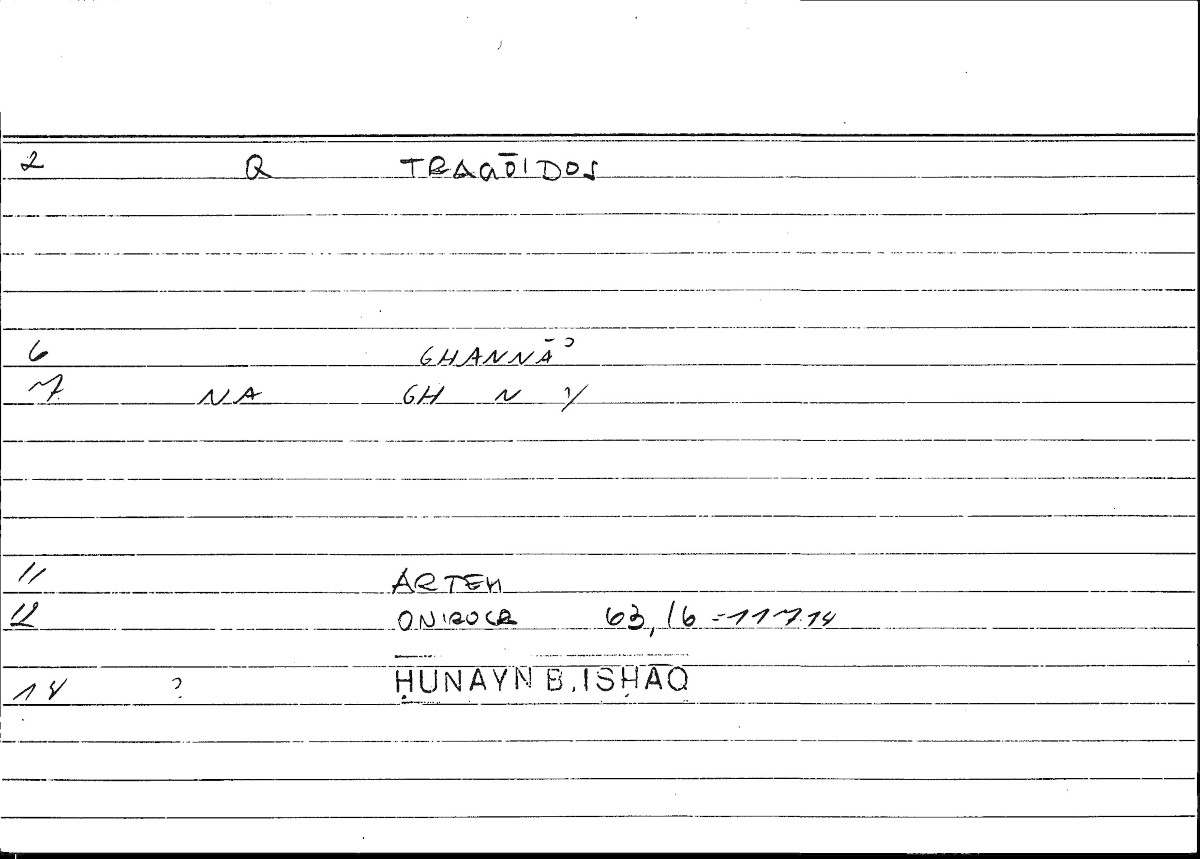 2 Q TRAGŌIDOS
6 GHANNĀʾ
7 NA GH N Y
11 ARTEM
12 ONIROCR 63,16 = 117.14
14 ? ḤUNAYN B. ISḤĀQ